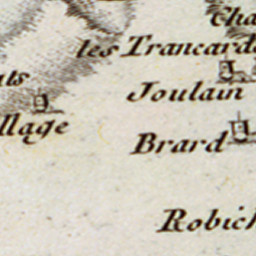 Cha
les Trancard
ats
Joulain
llage
Brard
Robich